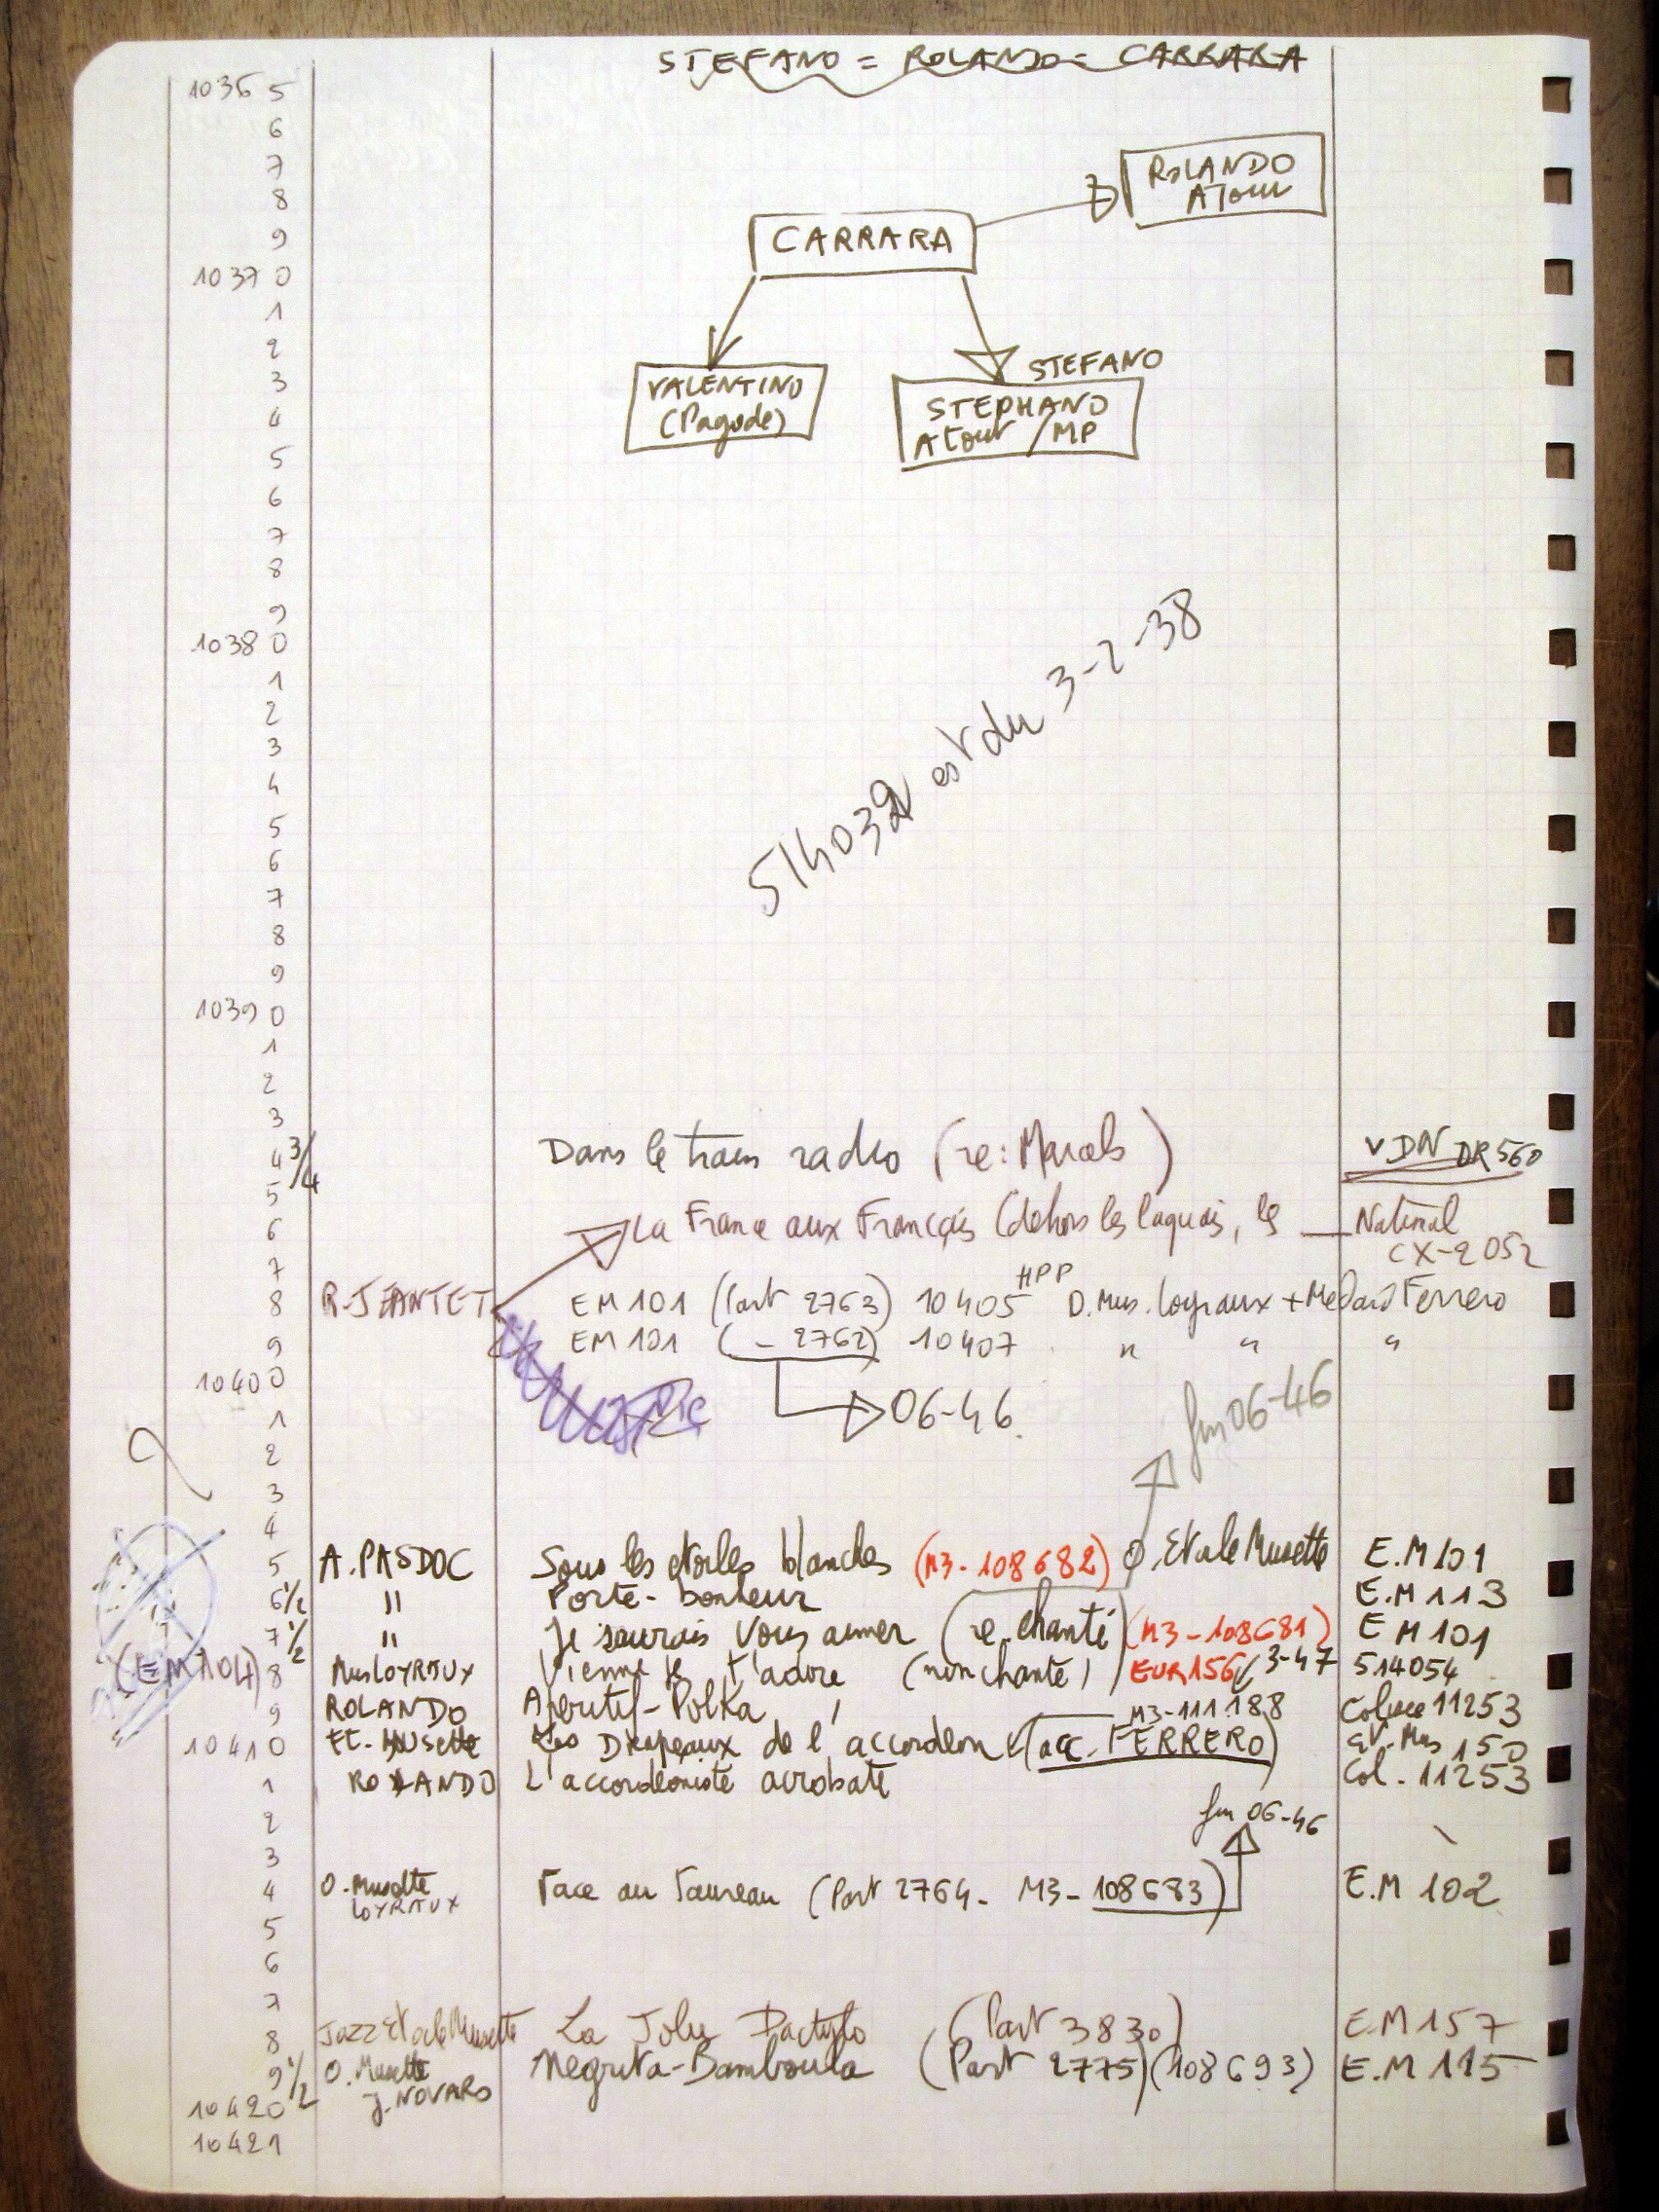 STEFANO = ROLANDO = CARRARA
1036 5
6
7
ROLANDO
ATout
8
9
CARRARA
1037 0
1
2
STEFANO
3
VALENTINO
(Pagode)
STEPHANO
Atout / MP
4
5
6
7
8
9
1038 0
514032 est du 3-2-38
1
2
3
4
5
6
7
8
9
1039 0
1
2
3
4 3/4 Dans le train radio (re: ) VDN DR 560
5
6 La France aux Français (dehors les laquais, le National
CX-2052
7
8 R. JEANTET EM 101 (Part 2763) 10405 HPP O. Mus. Loyraux + Medard Ferrero
9 EM 101 ( - 2762) 10407 " " "
1040 0
1 06-46
fin 06-46
2
3
4
5 A. PASDOC Sous les étoiles blanches (M3-108682) O. Etoile Musette E.M 101
6 1/2 " Porte-bonheur E.M 113
7 1/2 " Je saurais vous aimer (re chanté) (M3-108681) E M 101
(EM 104) 8 Mus LOYRAUX Vienne je t'adore (non chanté) EUR 156 3-47 514054
9 ROLANDO Apéritif-Polka M3-111188 Coluce 11253
1041 0 ET. Musette Les Drapeaux de l'accordéon (acc. FERRERO) Et. Mus 150
1 ROLANDO L'accordéoniste acrobate Col. 11253
2 fin 06-46
3
4 O. Musette LOYRAUX Face au Taureau (Part 2764 - M3-108683) E.M 102
5
6
7
8 Jazz Etoile Musette La Jolie Dactylo (Part 3830) E.M 157
9 1/2 O. Musette J. NOVARO Negrita-Bamboula (Part 2775) (108693) E.M 115
1042 0
10421